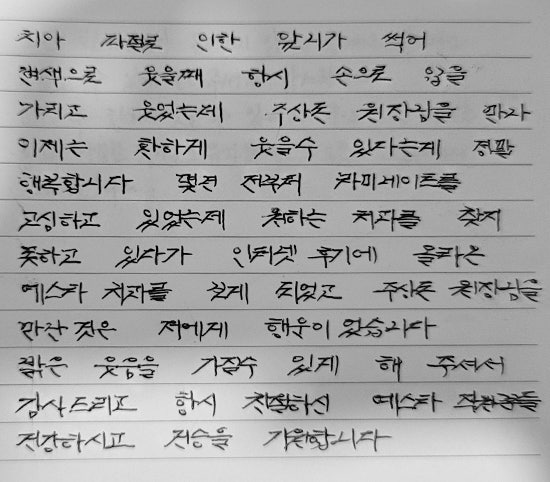 치아 파절로 인한 앞니가 썩어
변색으로 웃을때 항시 손으로 입을
가리고 웃었는데 주상돈 원장님을 만나
이제는 환하게 웃을수 있다는게 정말
행복합니다 몇년 전부터 라미네이트를
고심하고 있었는데 원하는 치과를 찾지
못하고 있다가 인터넷 후기에 올라온
예스타 치과를 찾게 되었고 주상돈 원장님을
만난것은 저에게 행운이었습니다
밝은 웃음을 가질수 있게 해 주셔서
감사드리고 항시 친절하신 예스타 직원분들
건강하시고 건승을 기원합니다